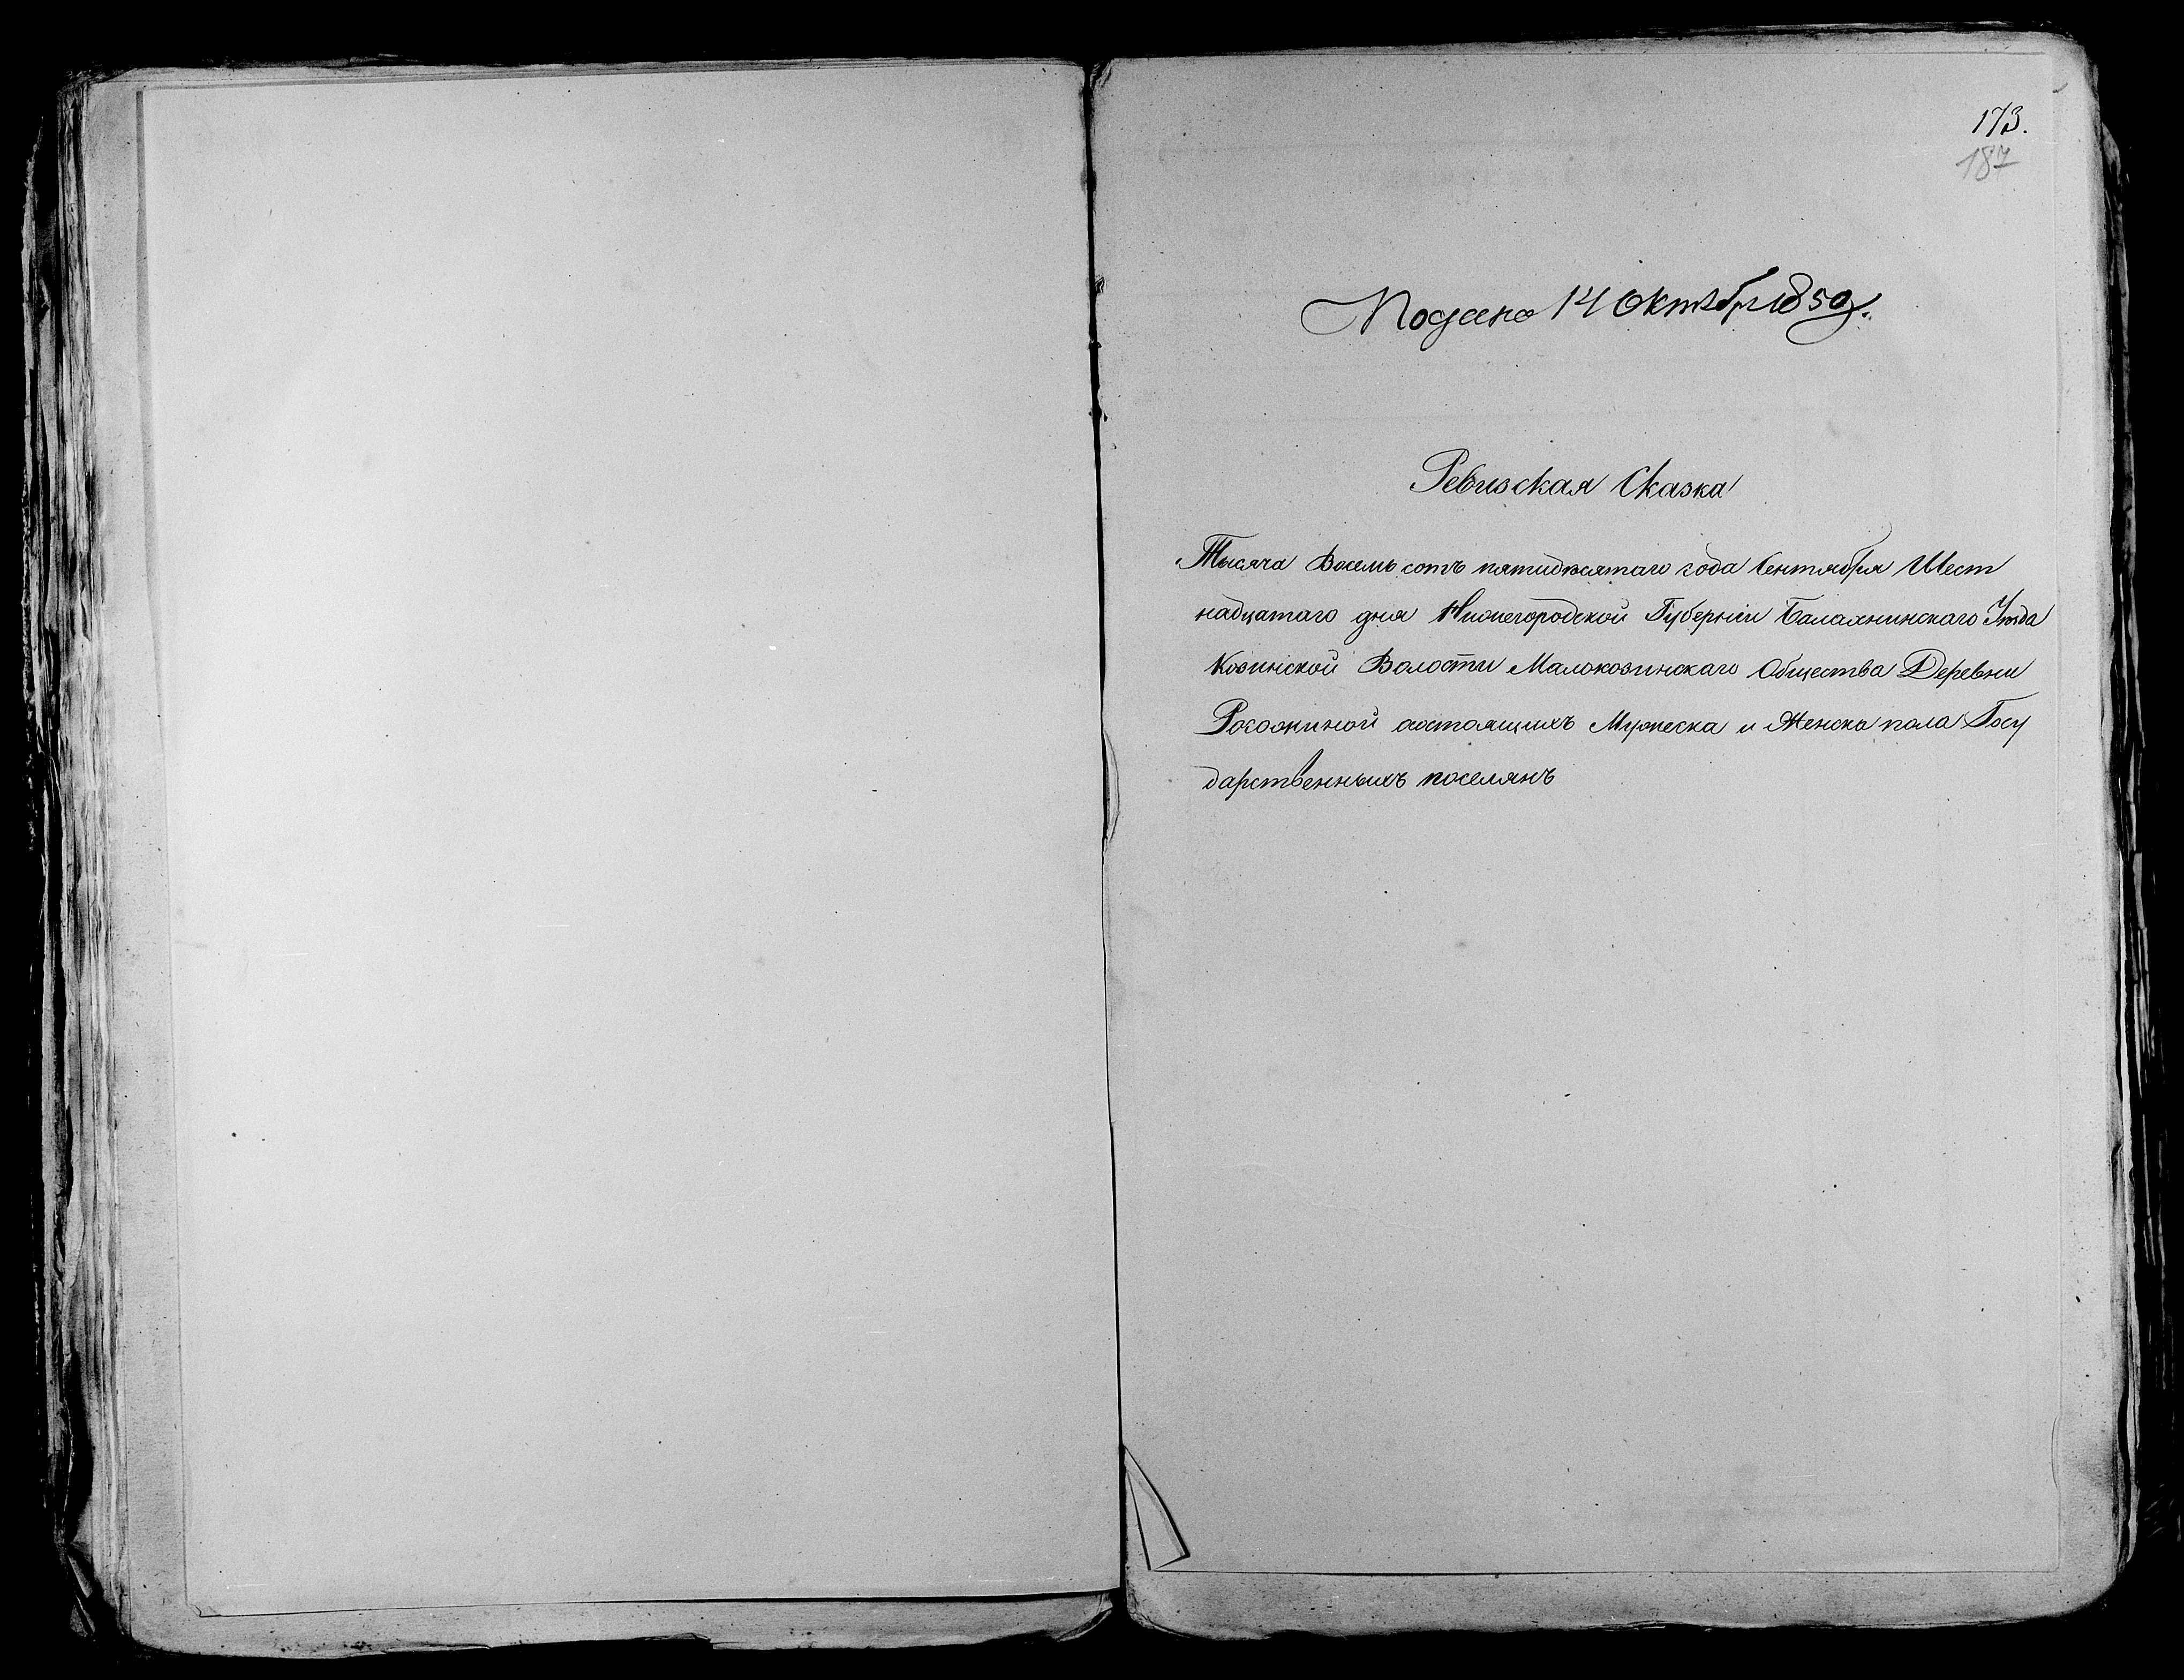 173.
187
Подано 14 Октября 1850 г.
Ревизская Сказка
Тысяча Восемь сотъ пятидесятаго года Сентября Шест
надцатаго дня Нижегородской Губерніи Балахнинскаго Уезда
Козинской Волости Малокозинскаго Общества Деревни
Рогожиной состоящихъ Мужеска и Женска пола Госу
дарственныхъ поселянъ